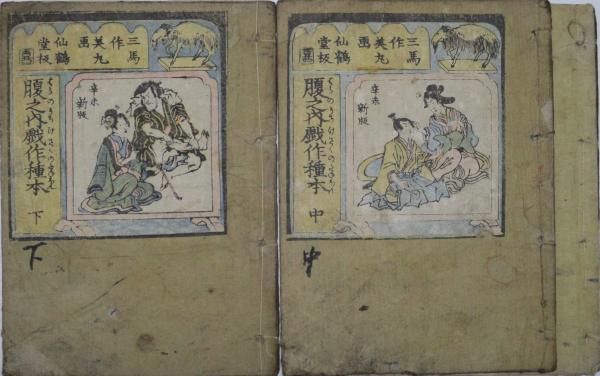 三馬作
美丸画
仙鶴堂板
腹之内戯作種本
はらのうちけさくのたねほん
中
辛未新版
中
三馬作
美丸画
仙鶴堂板
腹之内戯作種本
はらのうちけさくのたねほん
下
辛未新版
下